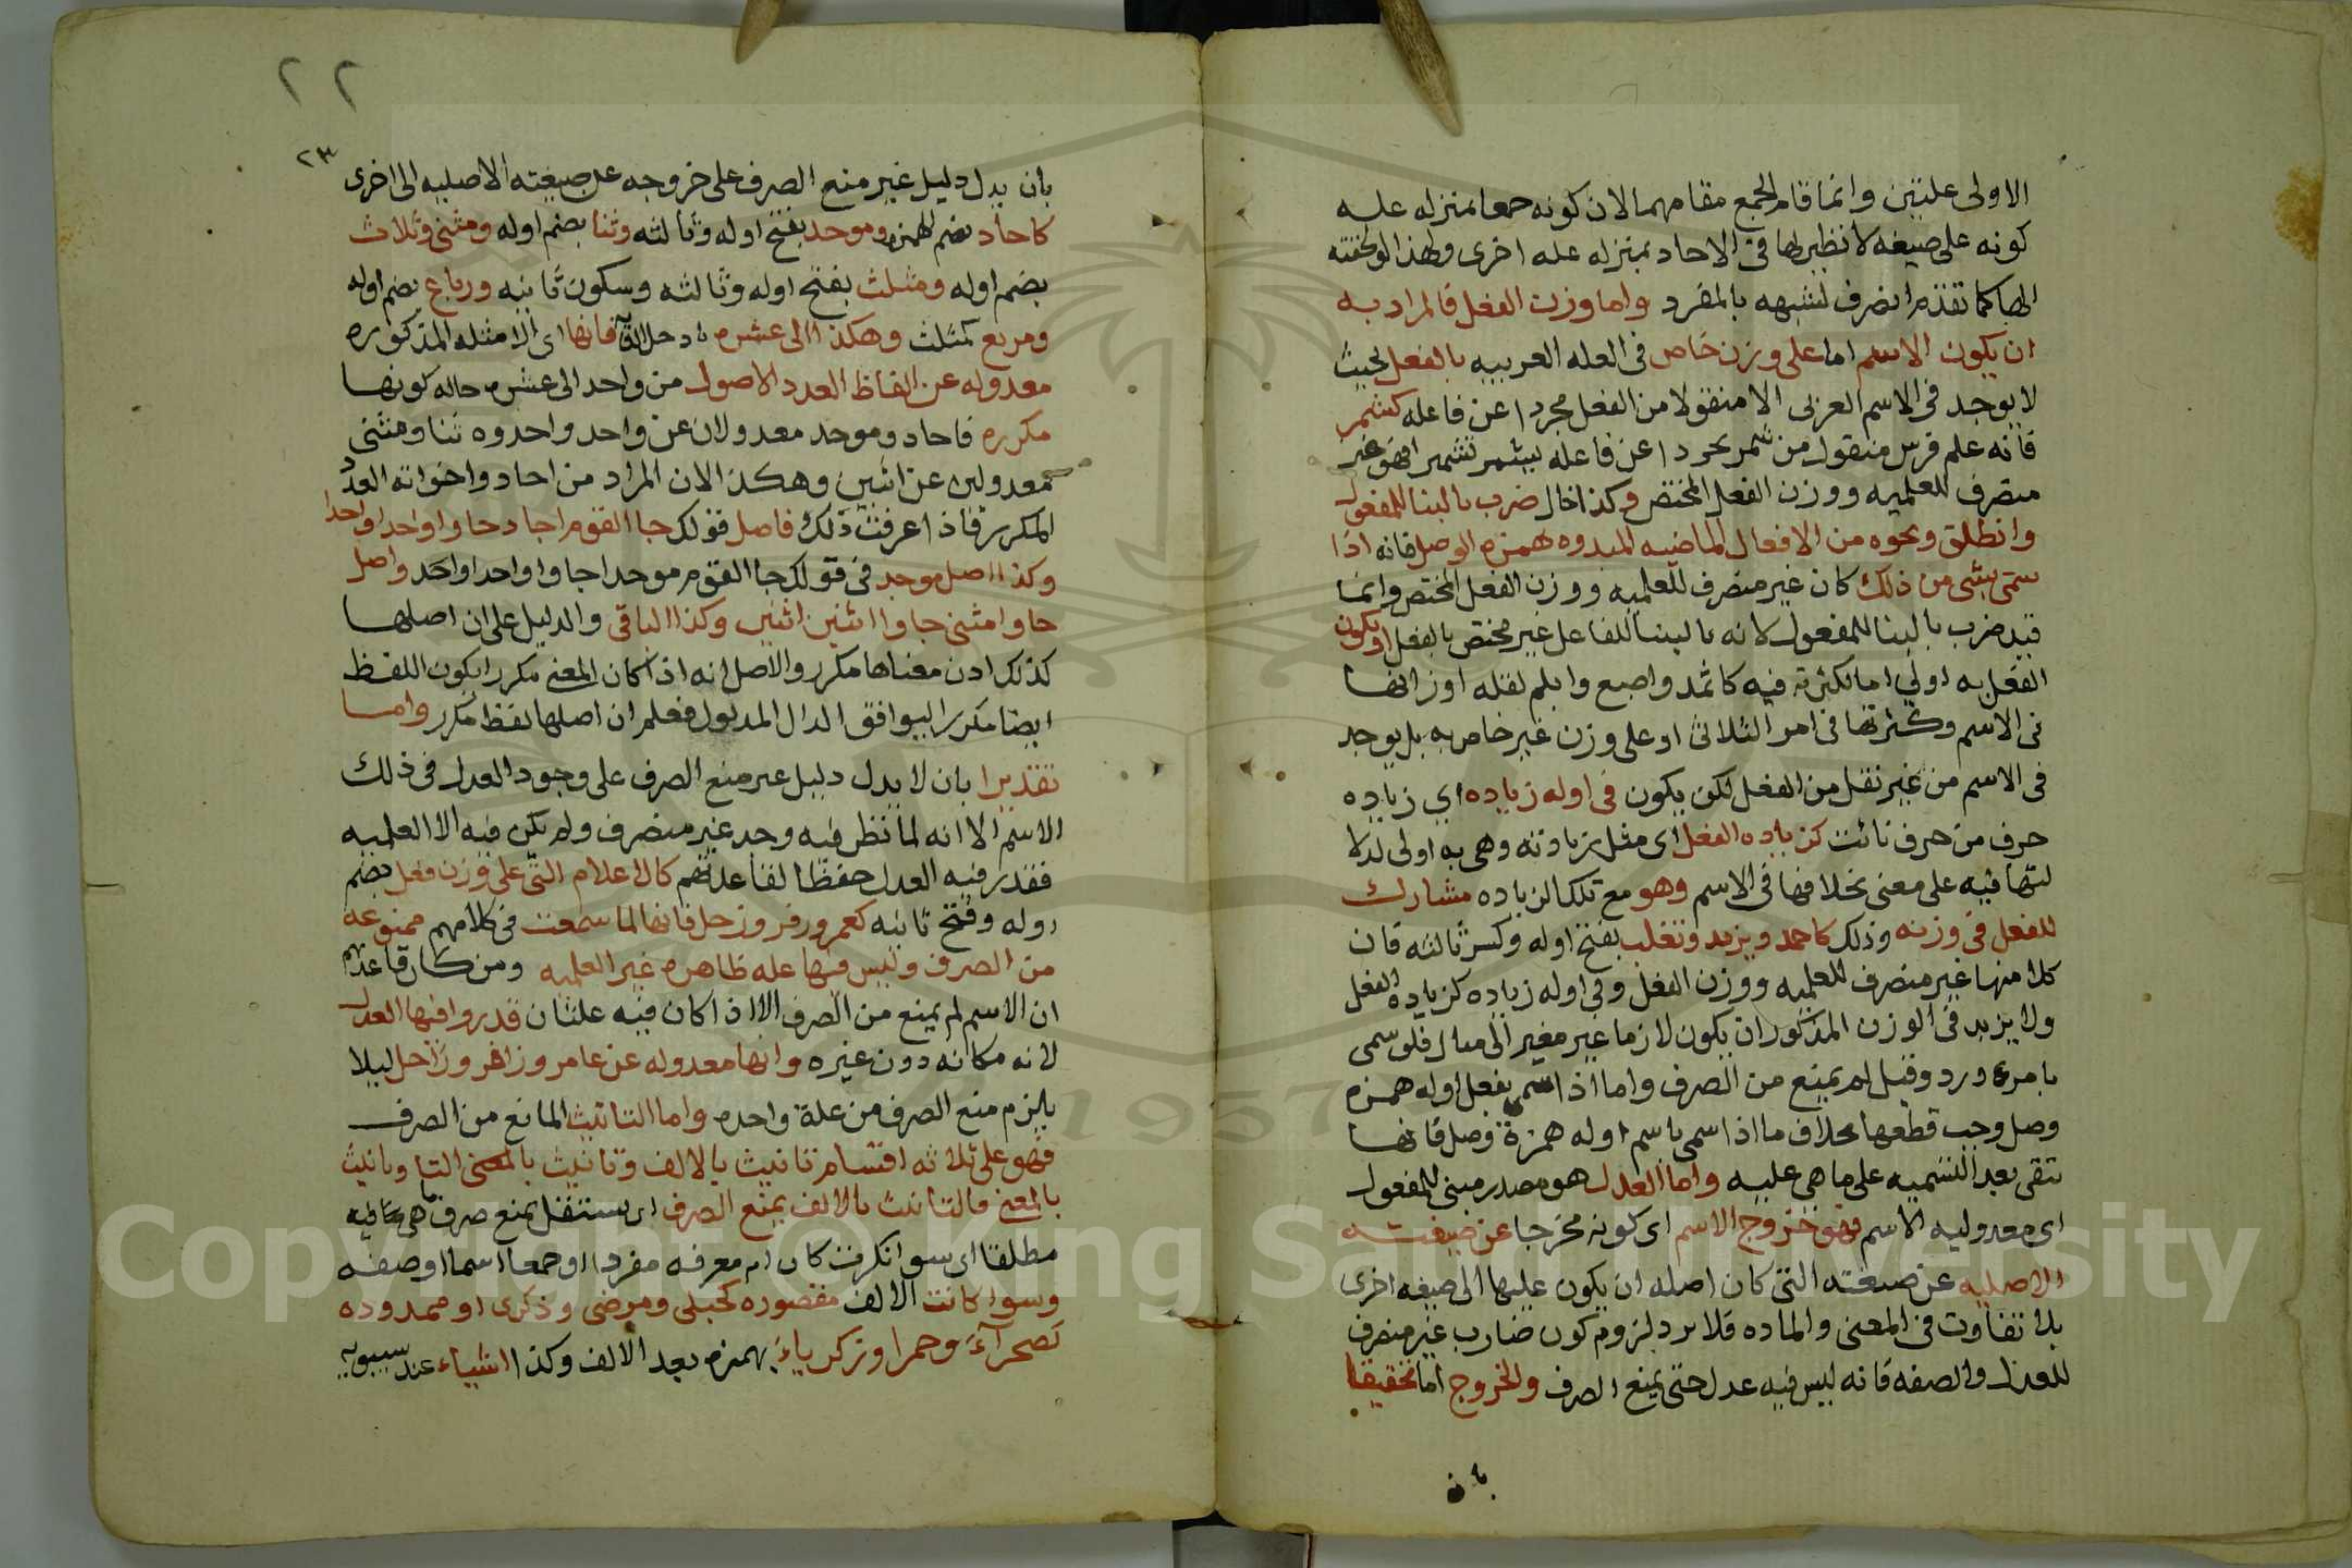 الاولى علتين وانما قام الجمع مقامهما لان كونه جمعا بمنزله عله
كونه على صيغه لا نظير لها فى الاحاد بمنزله عله اخرى ولهذا لو لحقته
الها كما تقدم انصرف لشبهه بالمفرد واما وزن الفعل فالمراد به
ان يكون الاسم اما على وزن خاص فى العله العربيه بالفعل بحيث
لا يوجد فى الاسم العربى الا منقولا من الفعل مجردا عن فاعله كشمر
فانه علم فرس منقول من شمر مجردا عن فاعله يشمر تشميرا فهو غير
منصرف للعلميه ووزن الفعل المختص وكذا خال ضرب بالبنا للمفعول
وانطلق ونحوه من الافعال الماضيه المبدوه بهمزه الوصل فانه اذا
سمى بشى من ذلك كان غير منصرف للعلميه ووزن الفعل المختص وانما
قيد ضرب بالبنا للمفعول لانه بالبنا للفاعل غير مختص بالفعل او يكون
الفعل به اولى اما لكثرته فيه كاثمد واصبع وابلم لقله اوزانها
فى الاسم وكثرتها فى امر الثلاثى او على وزن غير خاص به بل يوجد
فى الاسم من غير نقل من الفعل لكن يكون فى اوله زياده اى زياده
حرف من حرف نائت كزياده الفعل اى مثل زيادته وهى به اولى لدلا
لتها فيه على معنى بخلافها فى الاسم وهو مع تلك الزياده مشارك
للفعل فى وزنه وذلك كاحمد ويزيد وتغلب بفتح اوله وكسر ثالثه فان
كلا منها غير منصرف للعلميه ووزن الفعل وفى اوله زياده كزياده الفعل
ولا يزيد فى الوزن المذكور ان يكون لازما غير مغير الى مثال فلو سمى
بامرء ورد وقيل لم يمنع من الصرف واما اذا سمى بفعل اوله همزه
وصل وجب قطعها بخلاف ما اذا سمى باسم اوله همزة وصل فانها
تبقى بعد التسميه على ما هى عليه واما العدل هو مصدر مبنى للمفعول
اى معدوليه الاسم فهو خروج الاسم اى كونه مخرجا عن صيغته
الاصليه عن صيغته التى كان اصله ان يكون عليها الى صيغه اخرى
بلا تفاوت فى المعنى والماده فلا يرد لزوم كون ضارب غير منصرف
للعدل والصفه فانه ليس فيه عدل حتى يمنع الصرف والخروج اما تحقيقا
بان
٢٢
٢٣
بان يدل دليل غير منع الصرف على خروجه عن صيغته الاصليه الى اخرى
كاحاد بضم الهمزه وموحد بفتح اوله وثالثه وثنا بضم اوله ومثنى وثلاث
بضم اوله ومثلث بفتح اوله وثالثه وسكون ثانيه ورباع بضم اوله
ومربع كمثلث وهكذا الى عشره فانها اى الامثله المذكوره
معدوله عن الفاظ العدد الاصول من واحد الى عشره حاله كونها
مكرره فاحاد وموحد معدولان عن واحد واحد وه ثنا ومثنى
معدولين عن اثنين وهكذا لان المراد من احاد واخواته العدد
المكرر فاذا عرفت ذلك فاصل قولك جا القوم احاد جاوا واحدا واحدا
وكذا اصل موحد فى قولك جا القوم موحدا جاوا واحدا واحد واصل
جاوا مثنى جاوا اثنين اثنين وكذا الباقى والدليل على ان اصلها
كذلك ادن معناها مكرر والاصل انه اذا كان المعنى مكررا يكون اللفظ
ايضا مكررا ليوافق الدال المدلول فعلم ان اصلها لفظ مكرر واما
تقديرا بان لا يدل دليل غير منع الصرف على وجود العدل فى ذلك
الاسم الا انه لما نظر فيه وجد غير منصرف ولم يكن فيه الا العلميه
فقدر فيه العدل حفظا لقاعدتهم كالاعلام التى على وزن فعل بضم
اوله وفتح ثانيه كعمر وزفر وزحل فانها لما سمعت فى كلامهم ممنوعة
من الصرف وليس فيها عله ظاهره غير العلميه ومن كان قاعدتهم
ان الاسم لم يمنع من الصرف الا اذا كان فيه علتان قدروا فيها العدل
لانه مكانه دون غيره وانها معدوله عن عامر وزافر وزاحل ليلا
يلزم منع الصرف من علة واحده واما التانيث المانع من الصرف
فهو على ثلاثه اقسام تانيث بالالف وتانيث بالمعنى التا وتانيث
بالمعنى فالتانيث بالالف يمنع الصرف اى يستقل بمنع صرف ما هى فيه
مطلقا اى سوا نكرت كان ام معرفه مفردا او جمعا اسما او صفه
وسوا كانت الالف مقصوره كحبلى ومرضى وذكرى او ممدوده
كصحرآء وحمرا وزكرياء بهمزه بعد الالف وكذا اشياء عند سيبويه
Copyright © King Saud University
1957